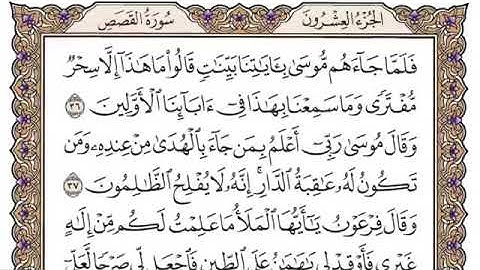 الجُزْءُ العِشْرُونَ سُورَةُ القَصَصِ
فَلَمَّا جَآءَهُم مُّوسَىٰ بِـَٔايَـٰتِنَا بَيِّنَـٰتٍ قَالُوا۟ مَا هَـٰذَآ إِلَّا سِحْرٌ
مُّفْتَرًى وَمَا سَمِعْنَا بِهَـٰذَا فِىٓ ءَابَآئِنَا ٱلْأَوَّلِينَ ٣٦
وَقَالَ مُوسَىٰ رَبِّىٓ أَعْلَمُ بِمَن جَآءَ بِٱلْهُدَىٰ مِنْ عِندِهِۦ وَمَن
تَكُونُ لَهُۥ عَـٰقِبَةُ ٱلدَّارِ ۖ إِنَّهُۥ لَا يُفْلِحُ ٱلظَّـٰلِمُونَ ٣٧
وَقَالَ فِرْعَوْنُ يَـٰٓأَيُّهَا ٱلْمَلَأُ مَا عَلِمْتُ لَكُم مِّنْ إِلَـٰهٍ
غَيْرِى فَأَوْقِدْ لِى يَـٰهَـٰمَـٰنُ عَلَى ٱلطِّينِ فَٱجْعَل لِّى صَرْحًا لَّعَلِّىٓ